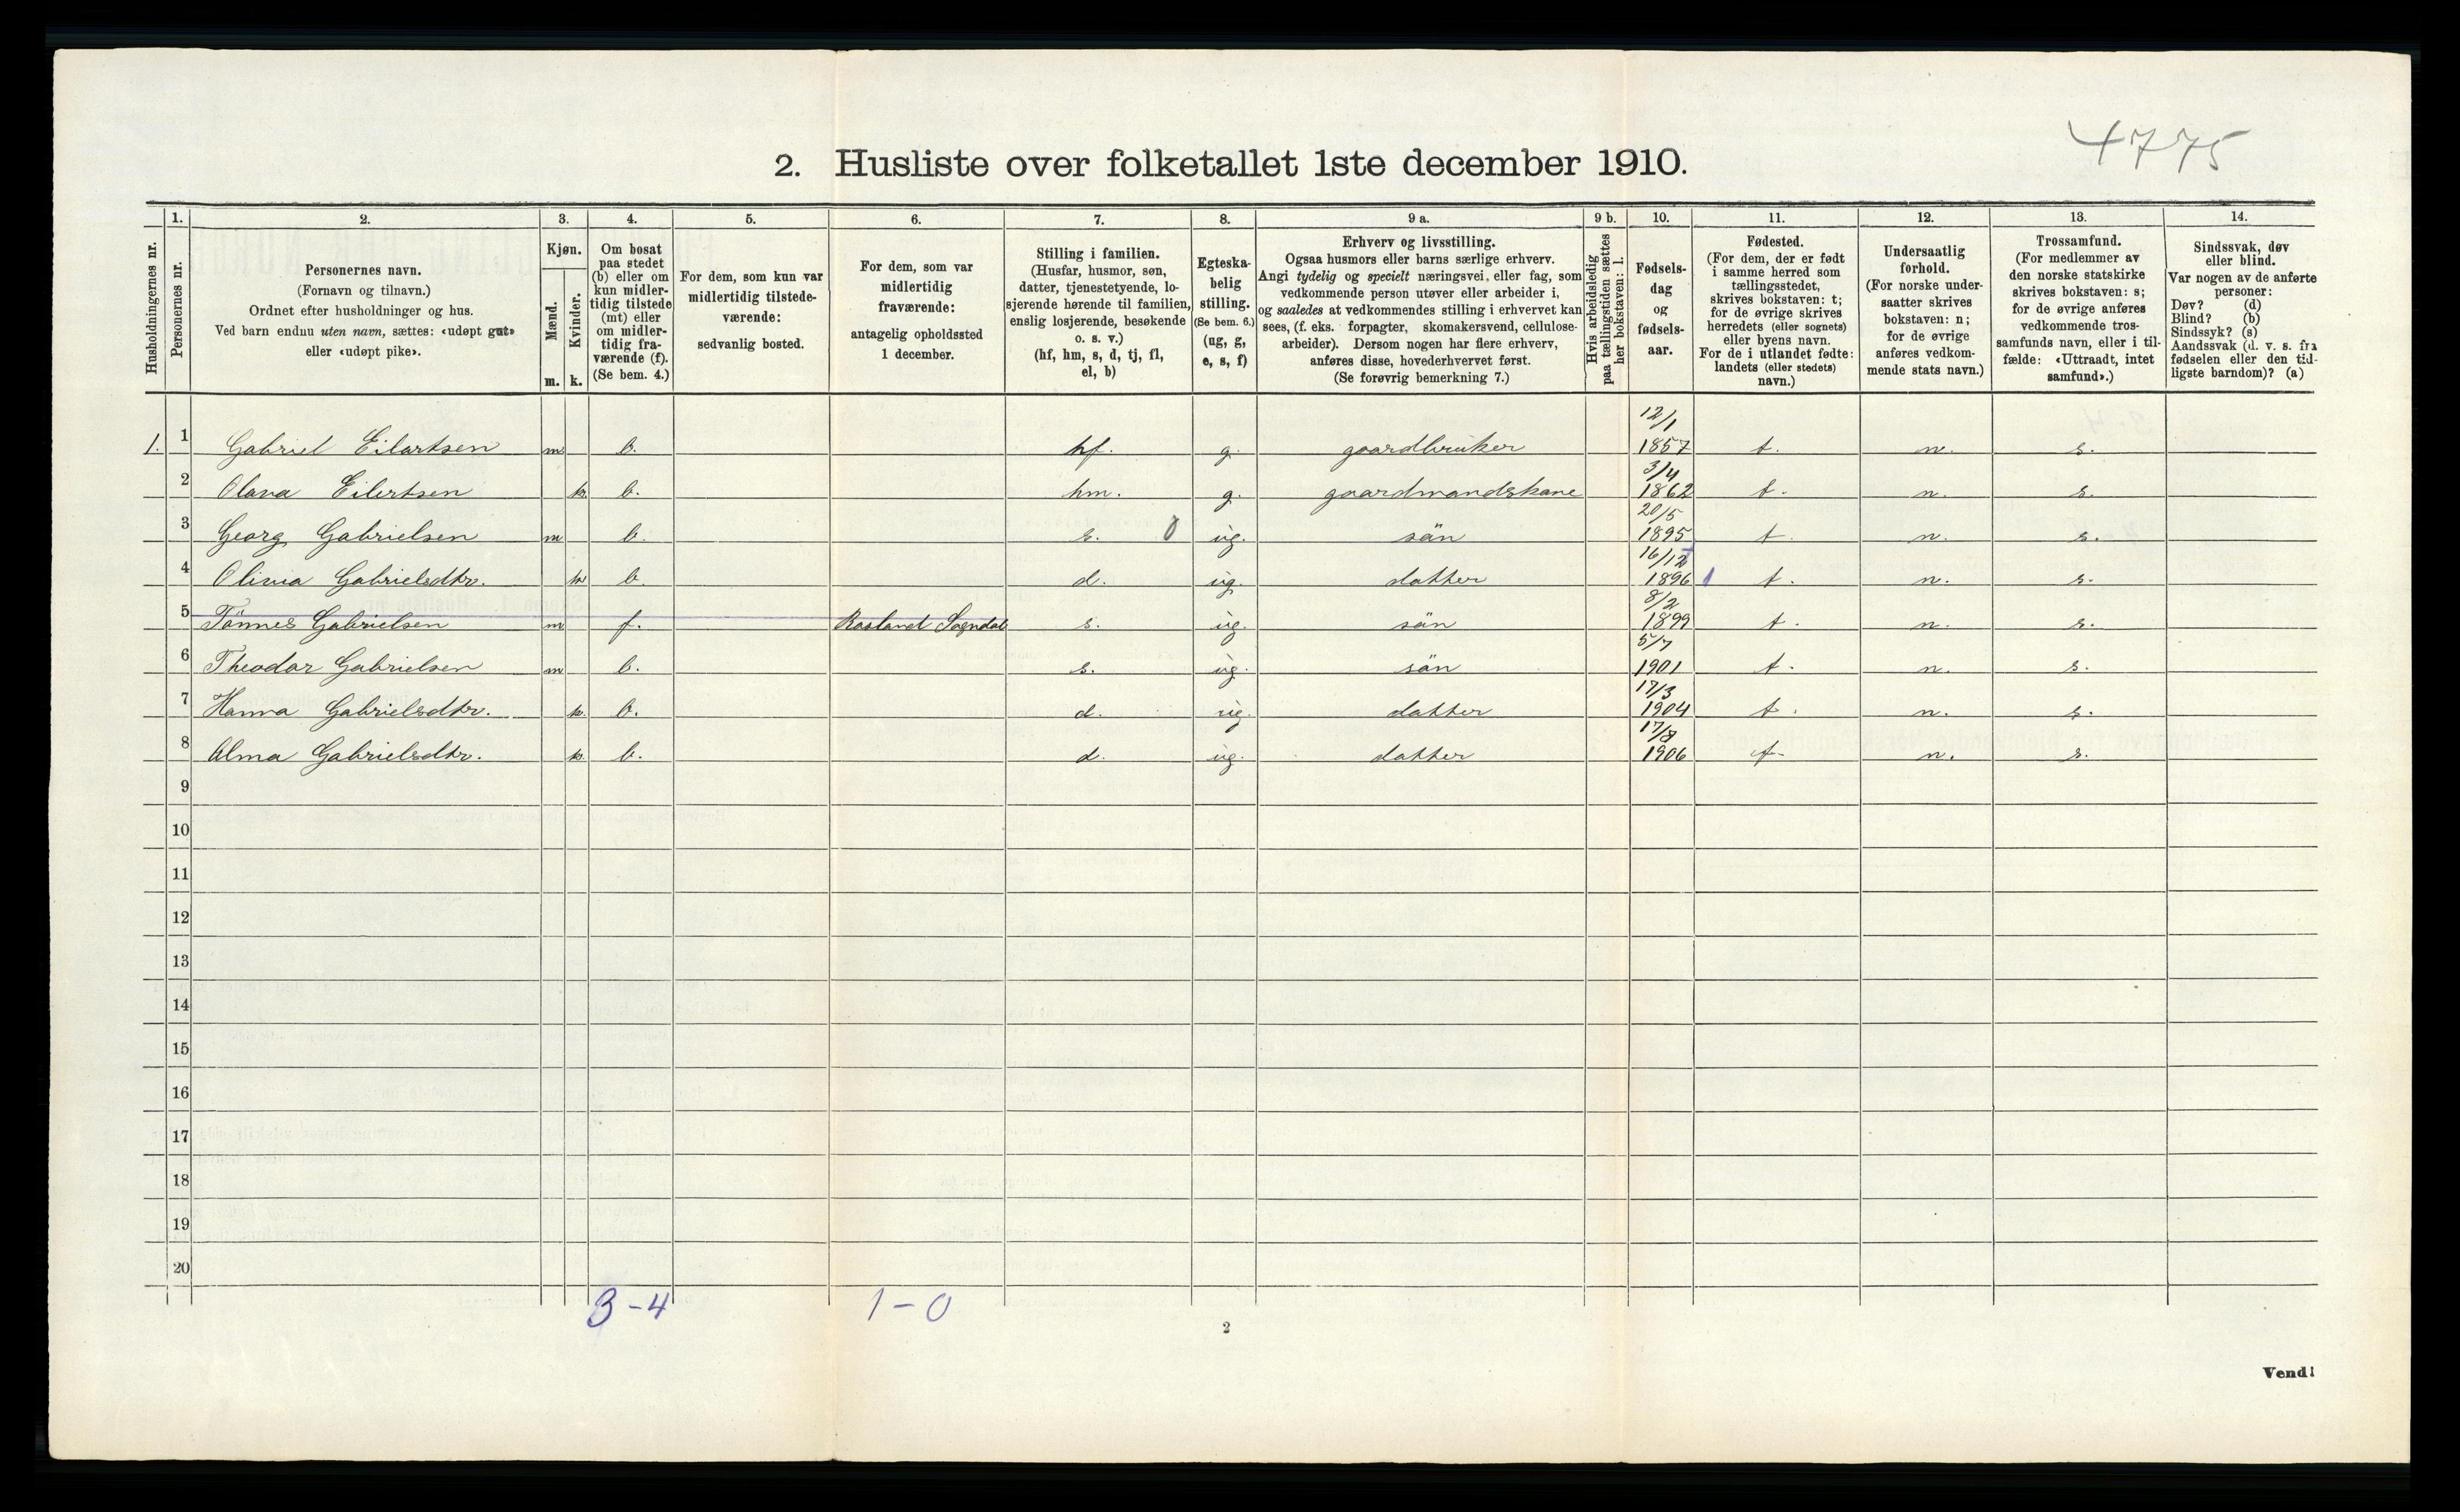 4775
2. Husliste over folketallet 1ste december 1910.
Husholdningernes nr.
1. Personernes nr.
2. Personernes navn. (Fornavn og tilnavn.) Ordnet efter husholdninger og hus. Ved barn endnu uten navn, sættes: «udøpt gut» eller «udøpt pike».
3. Kjøn. Mænd. m. Kvinder. k.
4. Om bosat paa stedet (b) eller om kun midler- tidig tilstede (mt) eller om midler- tidig fra- værende (f). (Se bem. 4.)
5. For dem, som kun var midlertidig tilstede- værende: sedvanlig bosted.
6. For dem, som var midlertidig fraværende: antagelig opholdssted 1 december.
7. Stilling i familien. (Husfar, husmor, søn, datter, tjenestetyende, lo- sjerende hørende til familien, enslig losjerende, besøkende o. s. v.) (hf, hm, s, d, tj, fl, el, b)
8. Egteska- belig stilling. (Se bem. 6.) (ug, g, e, s, f)
9 a. Erhverv og livsstilling. Ogsaa husmors eller barns særlige erhverv. Angi tydelig og specielt næringsvei, eller fag, som vedkommende person utøver eller arbeider i, og saaledes at vedkommendes stilling i erhvervet kan sees, (f. eks. forpagter, skomakersvend, cellulose- arbeider). Dersom nogen har flere erhverv, anføres disse, hovederhvervet først. (Se forøvrig bemerkning 7.)
9 b. Hvis arbeidsledig paa tællingstiden sættes her bokstaven: l.
10. Fødsels- dag og fødsels- aar.
11. Fødested. (For dem, der er født i samme herred som tællingsstedet, skrives bokstaven: t; for de øvrige skrives herredets (eller sognets) eller byens navn. For de i utlandet fødte: landets (eller stedets) navn.)
12. Undersaatlig forhold. (For norske under- saatter skrives bokstaven: n; for de øvrige anføres vedkom- mende stats navn.)
13. Trossamfund. (For medlemmer av den norske statskirke skrives bokstaven: s; for de øvrige anføres vedkommende tros- samfunds navn, eller i til- fælde: «Uttraadt, intet samfund».)
14. Sindssvak, døv eller blind. Var nogen av de anførte personer: Døv? (d) Blind? (b) Sindssyk? (s) Aandssvak (d. v. s. fra fødselen eller den tid- ligste barndom)? (a)
1. 1 Gabriel Eilartsen m b. hf. g. gaardbruker 12/1 1857 t. n. s.
2 Olava Eilertsen k. b. hm. g. gaardmandskone 3/4 1862 t. n. s.
3 Georg Gabrielsen m b. s. 0 ug. sön 20/5 1895 t. n. s.
4 Olivia Gabrielsdtr. k b. d. ug. datter 16/12 1896 t. n. s.
5 Tönnes Gabrielsen m f. Rosland Sogndal s. ug. sön 8/2 1899 t. n. s.
6 Theodor Gabrielsen m b. s. ug. sön 5/7 1901 t. n. s.
7 Hanna Gabrielsdtr. k. b. d. ug. datter 17/3 1904 t. n. s.
8 Alma Gabrielsdtr. k. b. d. ug. datter 17/8 1906 t n. s.
9
10
11
12
13
14
15
16
17
18
19
20
3-4 1-0
2
Vend!